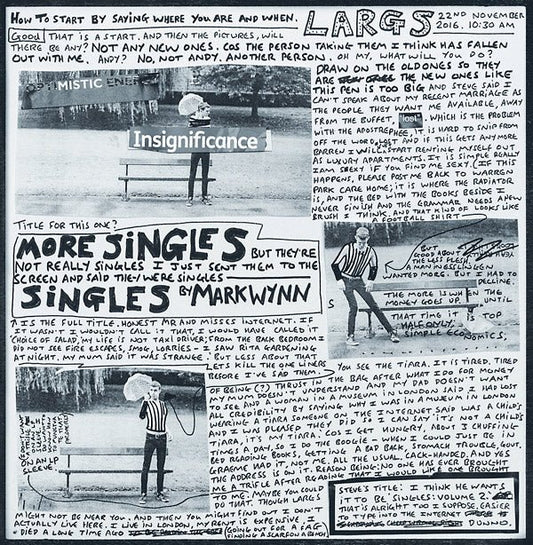 HOW TO START BY SAYING WHERE YOU ARE AND WHEN.
LARGS
22ND NOVEMBER
2016. 10:30 AM
Good THAT IS A START. AND THEN THE PICTURES, WILL
THERE BE ANY? NOT ANY NEW ONES. COS THE PERSON TAKING THEM I THINK HAS FALLEN
OUT WITH ME. ANDY? NO, NOT ANDY. ANOTHER PERSON. OH MY, WHAT WILL YOU DO?
DRAW ON THE OLD ONES SO THEY
ARE THE NEW ONES LIKE
THIS PEN IS TOO BIG AND STEVE SAID I
CAN'T SPEAK ABOUT MY RECENT MARRIAGE AS
THE PEOPLE, THEY WANT ME AVAILABLE, AWAY
FROM THE BUFFET, WHICH IS THE PROBLEM
WITH THE APOSTREPHEE, IT IS HARD TO SNIP FROM
OFF THE WORD, LOST AND IF THIS GETS ANYMORE
BARREN I WILL START RENTING MYSELF OUT
AS LUXURY APARTMENTS. IT IS SIMPLE REALLY
I AM SHEXY IF YOU FIND ME SEXY. (IF THIS
HAPPENS, PLEASE POST ME BACK TO WARREN
PARK CARE HOME; IT IS WHERE THE RADIATOR
IS, AND THE BED WITH THE BOOKS BESIDE I
NEVER FINISH AND THE GRAMMAR NEEDS A NEW
BRUSH I THINK. AND THAT KIND OF LOOKS LIKE
A FOOTBALL SHIRT
MISTIC
Insignificance
TITLE FOR THIS ONE?
MORE SINGLES BUT THEY'RE
NOT REALLY SINGLES I JUST SENT THEM TO THE
SCREEN AND SAID THEY WERE SINGLES
SINGLES BY MARK WYNN
BUT
GOOD ABOUT
THE LESS FLESH,
A MAN IN ESSLINGEN
WANTED MORE. BUT I HAD TO
DECLINE.
THE MORE IS WHEN THE
MONEY GOES UP. UNTIL
THAT TIME IT IS TOP
HALF ONLY.
SIMPLE ECONOMICS.
IS THE FULL TITLE, HONEST MR AND MISSES INTERNET. IF
IT WASN'T I WOULDN'T CALL IT THAT, I WOULD HAVE CALLED IT
'CHOICE OF SALAD, MY LIFE IS NOT TAXI DRIVER; FROM THE BACK BEDROOM I
DID NOT SEE FIRE ESCAPES, SMOG, LORRIES - I SAW RITA GARDENING
AT NIGHT. MY MUM SAID IT WAS STRANGE.' BUT LESS ABOUT THAT
LETS KILL THE ONE LINERS
BEFORE I'VE SAID THEM
YOU SEE THE TIARA. IT IS TIRED. TIRED
OF BEING (?) THRUST IN THE BAG AFTER WHAT I DO FOR MONEY
MY MUM DOESN'T UNDERSTAND AND MY DAD DOESN'T WANT
TO SEE AND A WOMAN IN A MUSEUM IN LONDON SAID I HAD LOST
ALL CREDIBILITY BY SAYING WHY I WAS IN A MUSEUM IN LONDON
WEARING A TIARA SOMEONE ON THE INTERNET SAID WAS A CHILD'S
AND I WAS PLEASED THEY DID SO I CAN SAY 'IT'S NOT A CHILD'S
TIARA, IT'S MY TIARA'. COS I GET HUNGRY, ABOUT 3 CHUFFING
TIMES A DAY, SO I DO THE BOOGIE - WHEN I COULD JUST BE IN
BED READING BOOKS, GETTING A BAD BACK, STOMACH TROUBLE, GOUT.
GRAEME HAD IT, NOT ME, ALL THE USUAL. CACK-HANDED, AND YES
THE ADDRESS IS ON IT. REASON BEING: NO ONE HAS EVER BROUGHT
ME A TRIFLE AFTER READING THAT I WOULD LIKE ONE BROUGHT
TO ME. MAYBE YOU COULD
DO THAT. THOUGH LARGS
ON AN UP
SLEEVE.
MIGHT NOT BE NEAR YOU. AND THEN YOU MIGHT FIND OUT I DON'T
ACTUALLY LIVE HERE. I LIVE IN LONDON, MY RENT IS EXPENSIVE, I
DIED A LONG TIME AGO (GOING OUT FOR A FAG
FINDING A SCARF ON A BIN)
STEVE'S TITLE: I THINK HE WANTS
IT TO BE, SINGLES: VOLUME 2.
THAT IS ALRIGHT TOO I SUPPOSE, EASIER
TO TYPE INTO THE INTERNET
DUNNO.